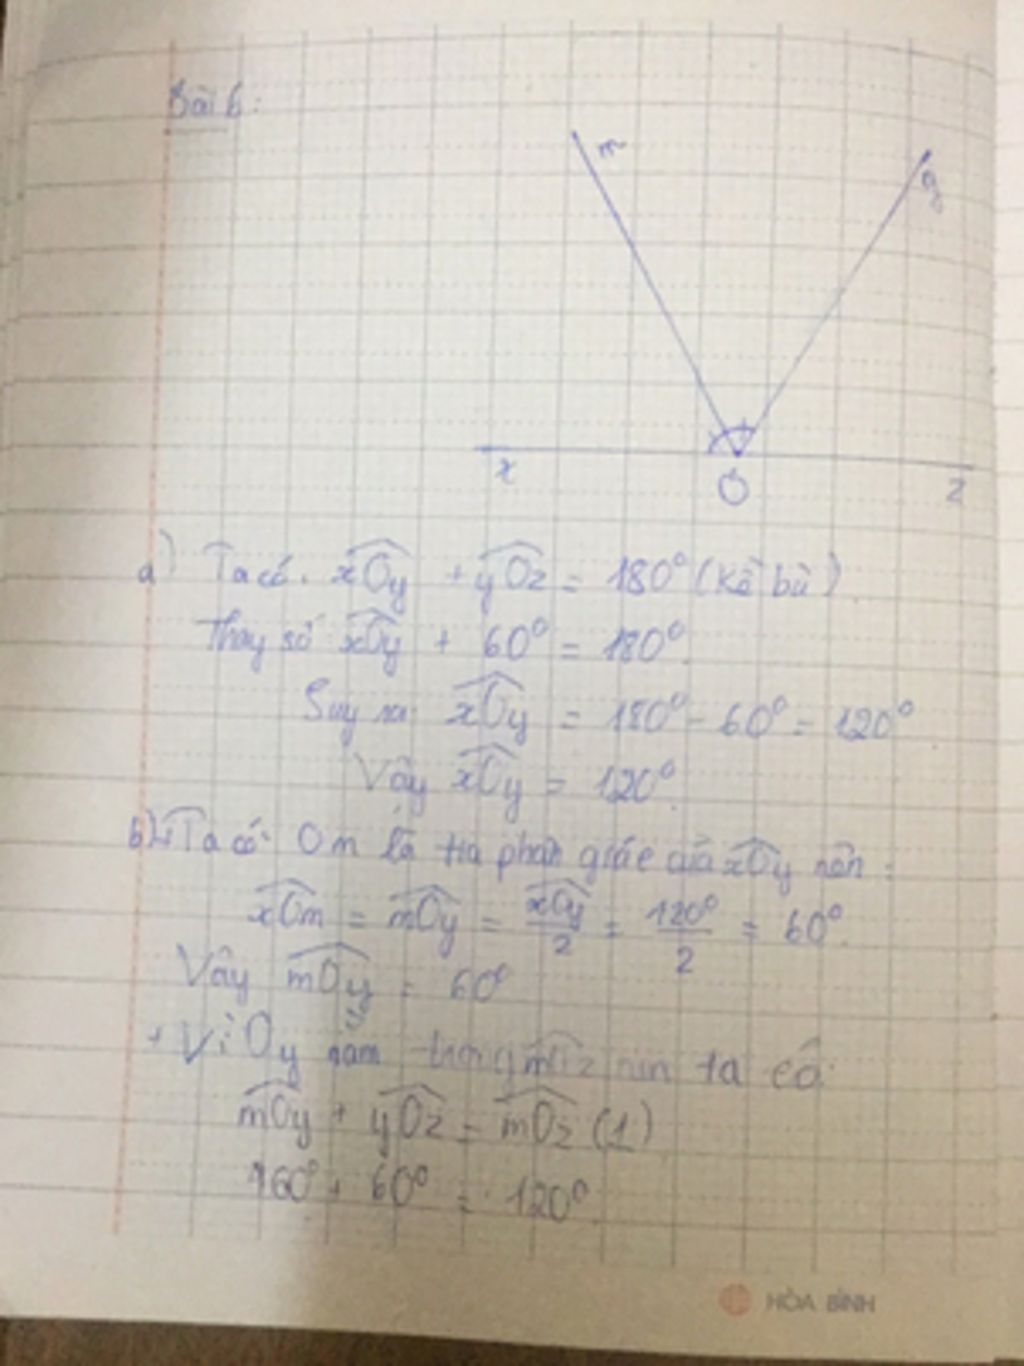 Bài 6:
m
y
x
O
z
a) Ta có: xOy + yOz = 180° (kề bù)
Thay số xOy + 60° = 180°.
Suy ra xOy = 180° - 60° = 120°
Vậy xOy = 120°.
b) + Ta có: Om là tia phân giác của xOy nên:
xOm = mOy = xOy/2 = 120°/2 = 60°.
Vậy mOy = 60°
+ Vì Oy nằm trong mOz nên ta có:
mOy + yOz = mOz (1)
60° + 60° = 120°.
HÒA BÌNH